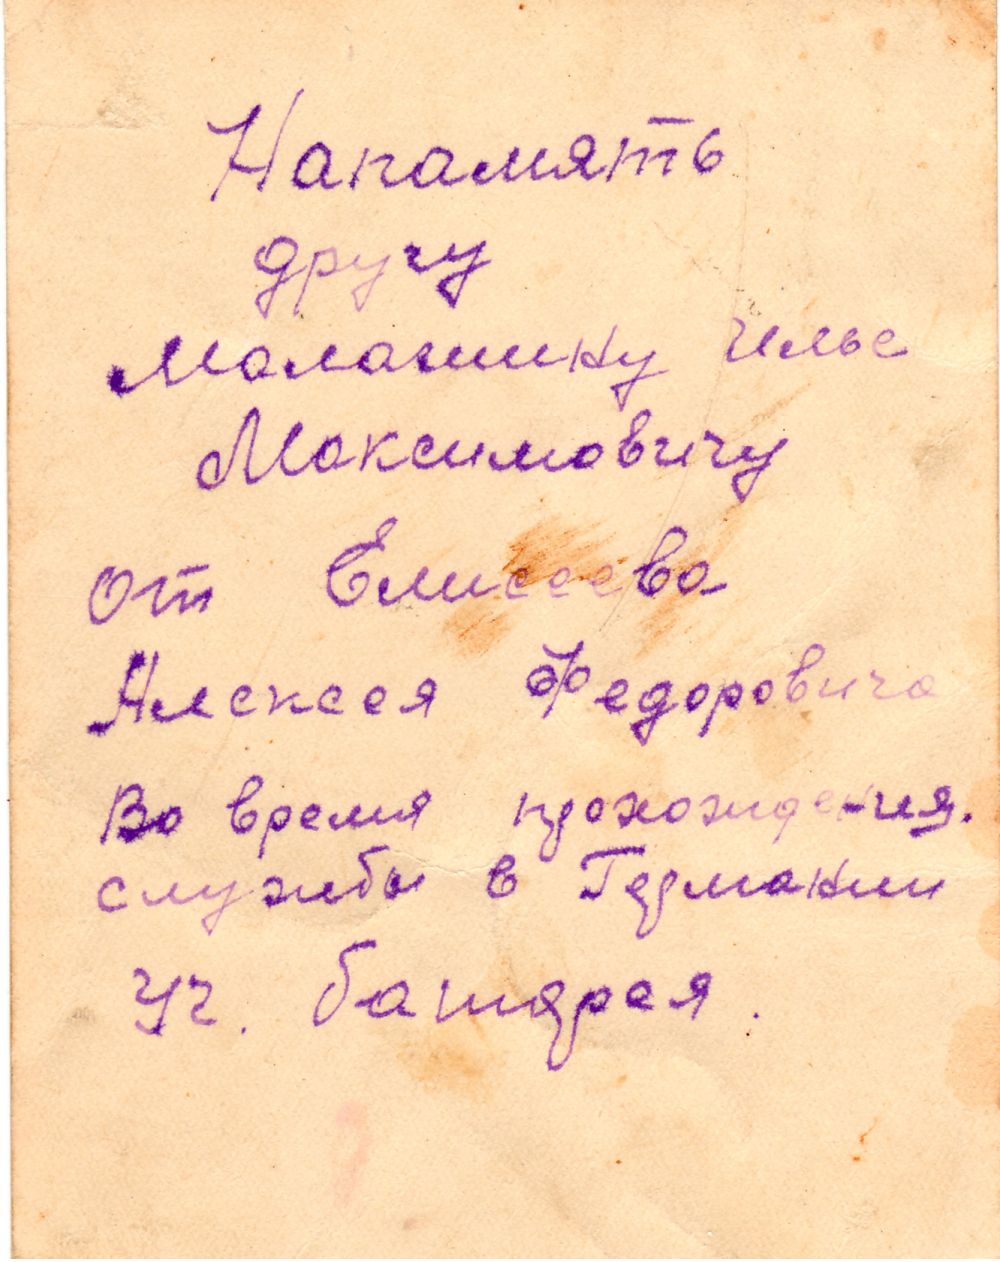 Напамять
другу
Малашику Илье
Максимовичу
от Елисеева
Алексея Федоровича
Во время прохождения.
службы в Германии
Уч. батарея.